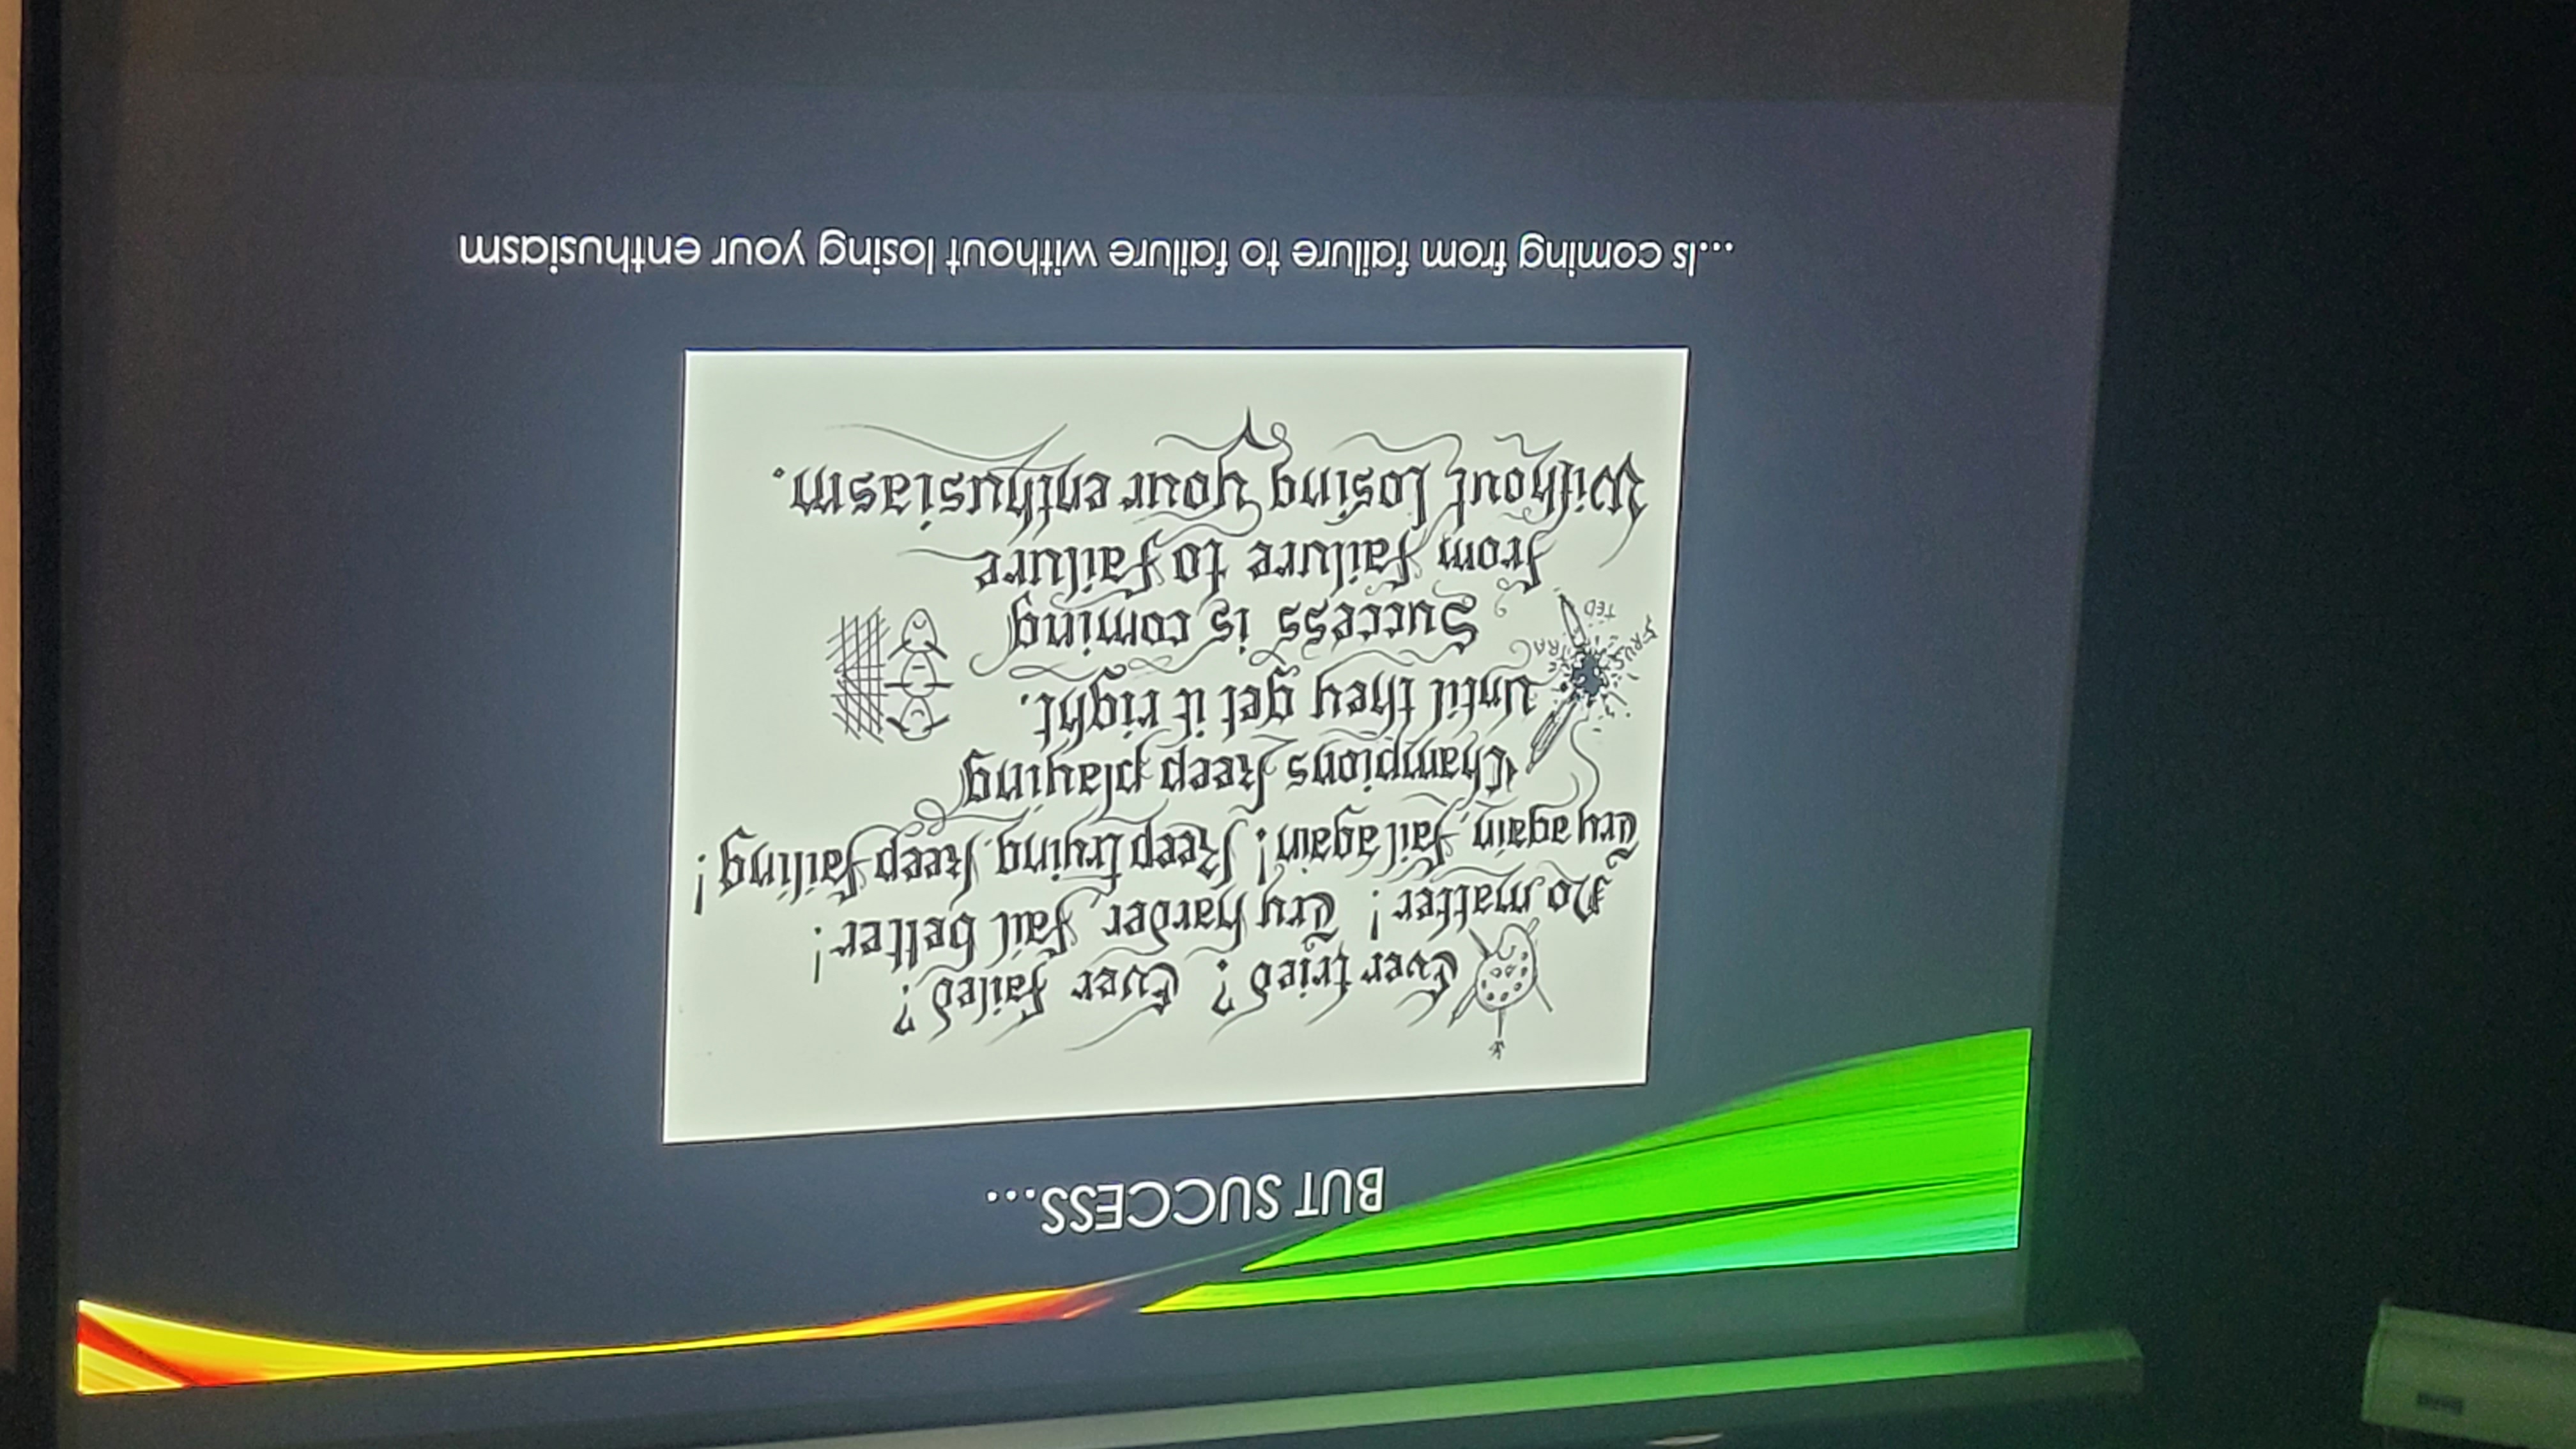 BUT SUCCESS...
Ever tried? Ever failed?
No matter! Try harder, fail better!
Try again, fail again! Keep trying, keep failing!
Champions keep playing
Until they get it right.
FRUS TRA
TED
Success is coming
from failure to failure
Without losing your enthusiasm.
...Is coming from failure to failure without losing your enthusiasm